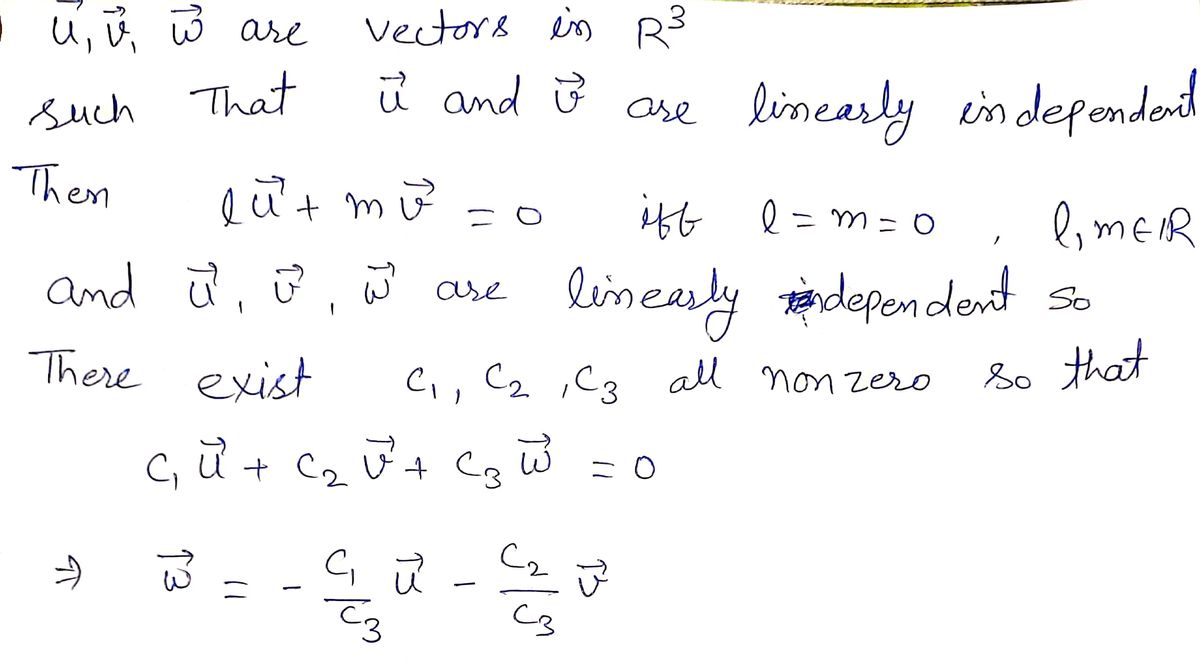 u⃗, v⃗, w⃗ are vectors in R³
such That u⃗ and v⃗ are linearly independent
Then lu⃗ + mv⃗ = 0 iff l = m = 0 , l, m ∈ ℝ
and u⃗, v⃗, w⃗ are linearly independent so
There exist C₁, C₂, C₃ all nonzero so that
C₁u⃗ + C₂v⃗ + C₃w⃗ = 0
⇒ w⃗ = - C₁/C₃ u⃗ - C₂/C₃ v⃗